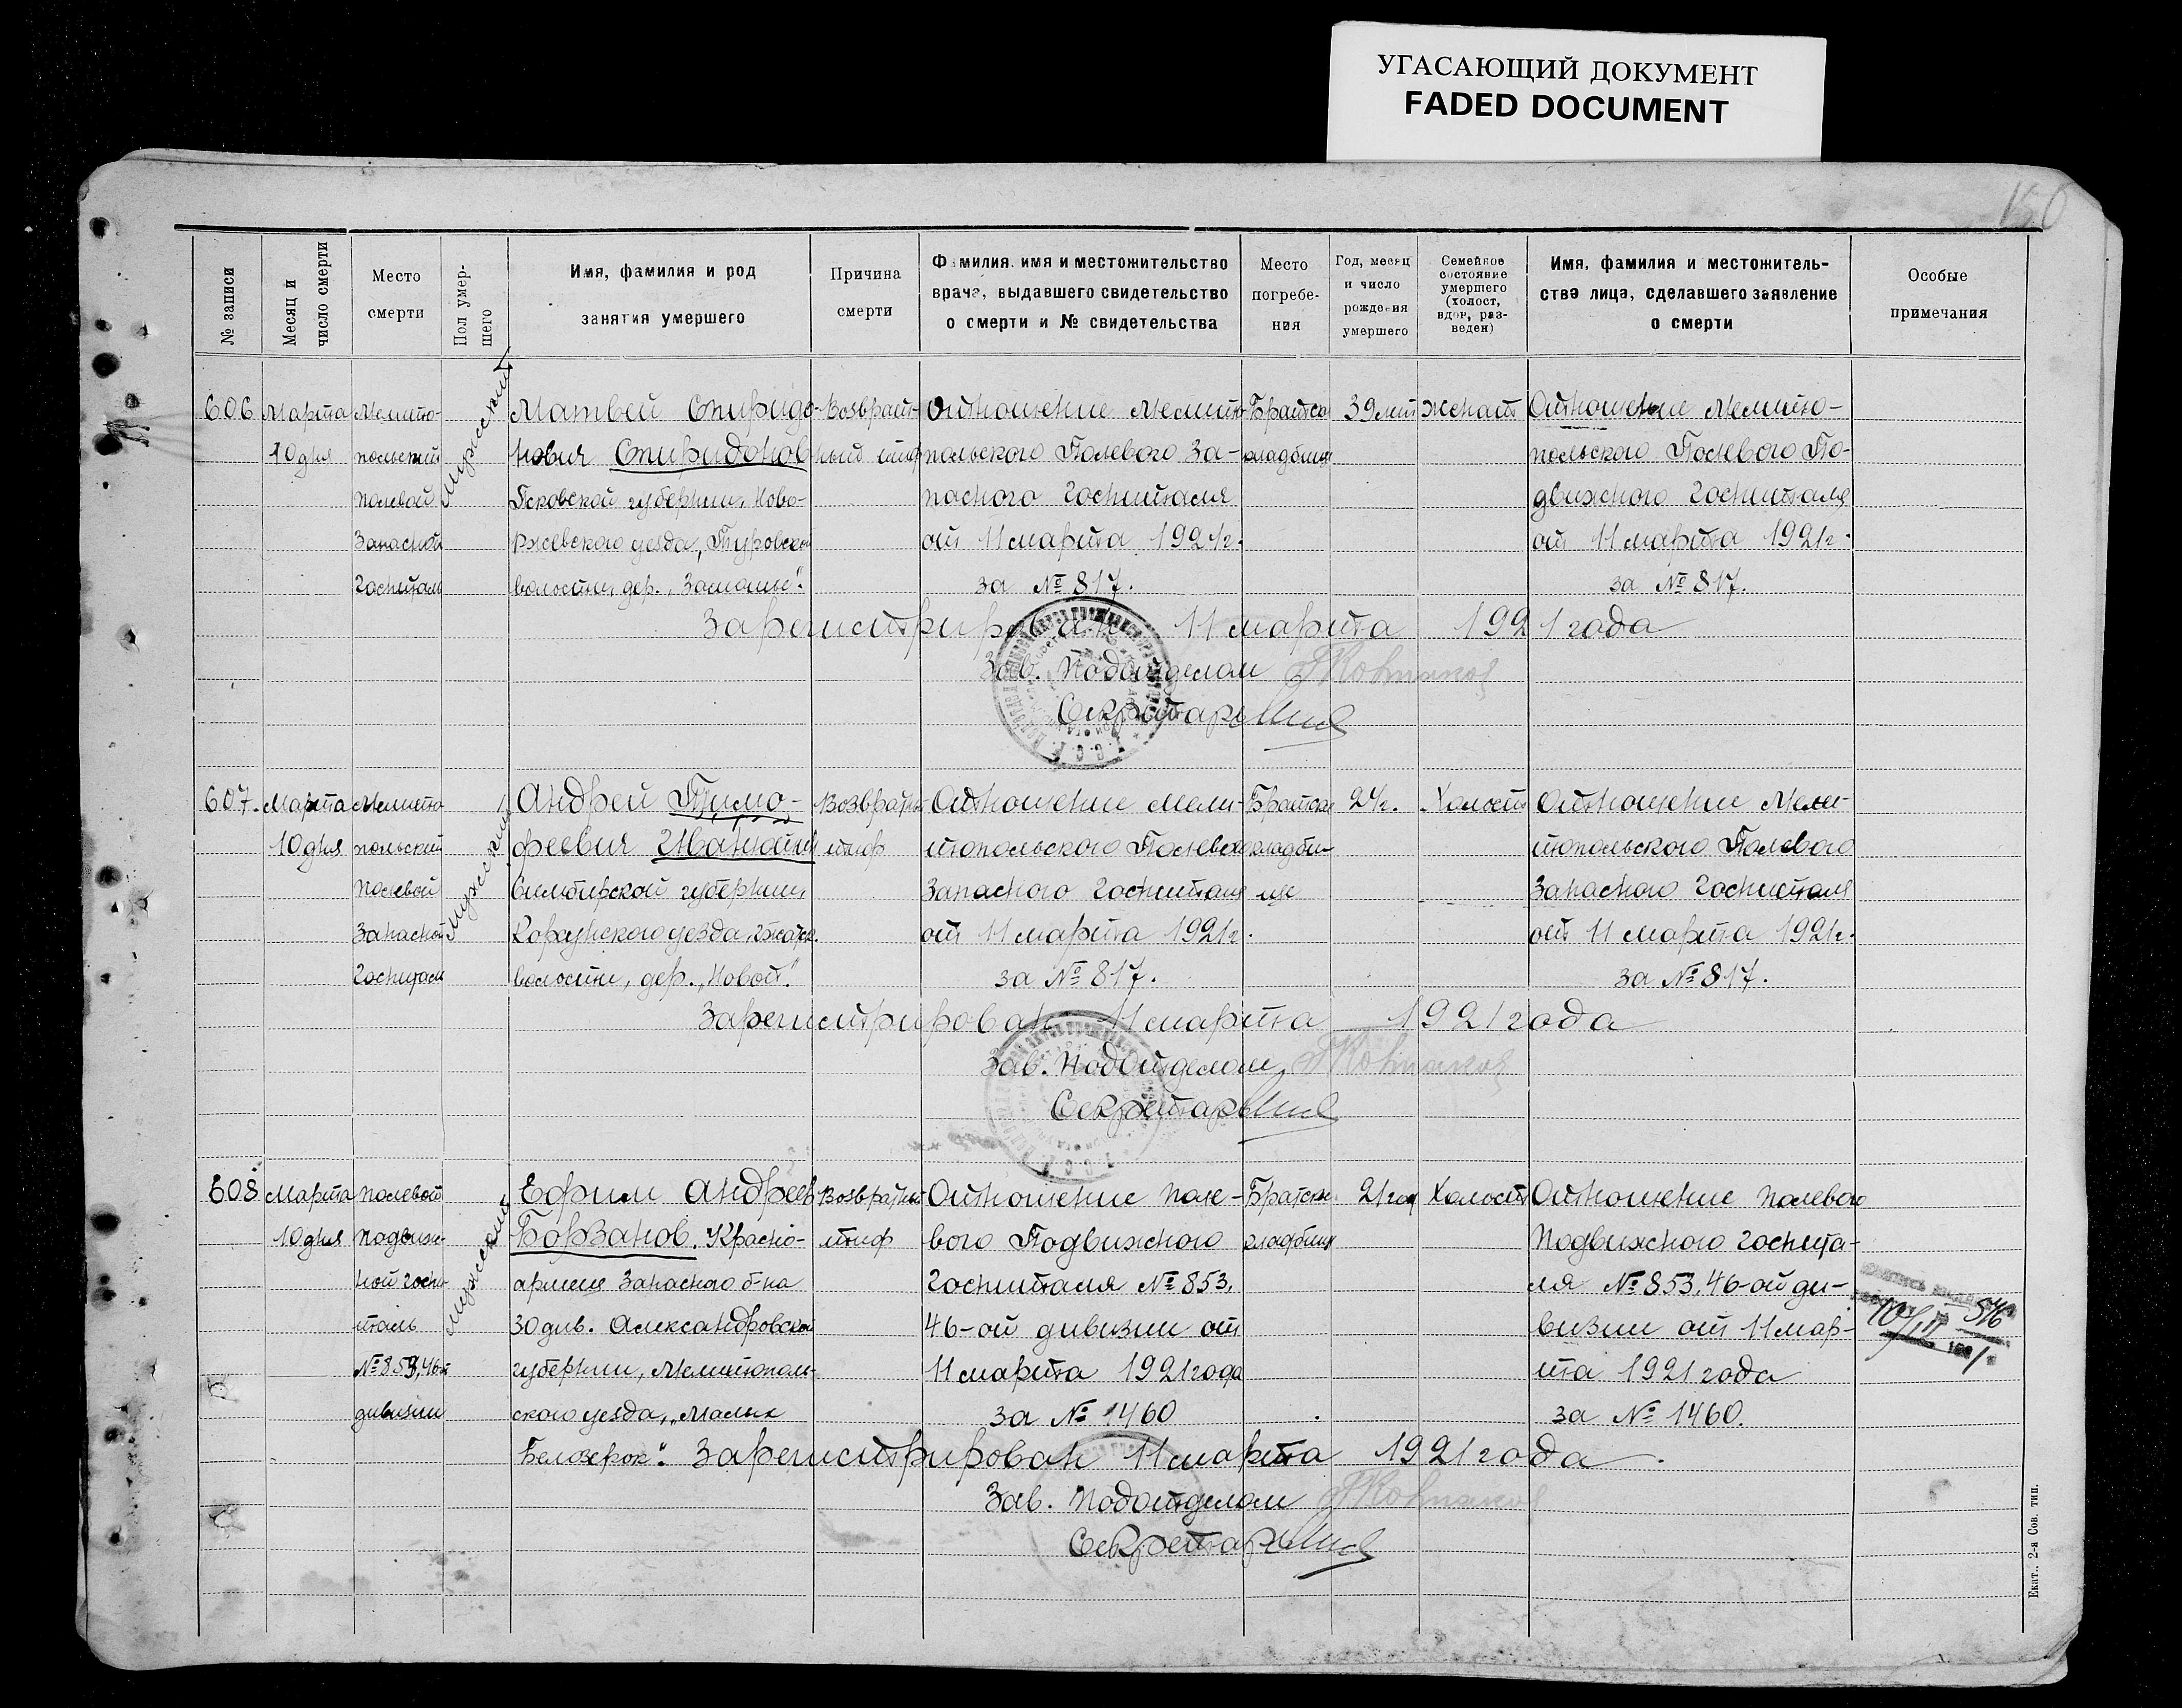 УГАСАЮЩИЙ ДОКУМЕНТ
FADED DOCUMENT
150
№ записи
Месяц и
число смерти
Место
смерти
Пол умер-
шего
Имя, фамилия и род
занятия умершего
Причина
смерти
Фамилия, имя и местожительство
врача, выдавшего свидетельство
о смерти и № свидетельства
Место
погребе-
ния
Год, месяц
и число
рождения
умершего
Семейное
состояние
умершего
(холост,
вдов, раз-
веден)
Имя, фамилия и местожитель-
ства лица, сделавшего заявление
о смерти
Особые
примечания
606
Марта
10 дня
Мелито-
польский
Полевой
Запасной
Госпиталь
Мужеский
Матвей Спиридо-
нович Спиридонов
Псковской губернии, Ново-
ржевского уезда, Туровской
волости, дер.
Возврат-
ный тиф
Отношение Мелито-
польского Полевого За-
пасного Госпиталя
от 11 марта 1921 г.
за № 817.
Братско
кладбище
39 лет
женат
Отношение Мелито-
польского Полевого По-
движного Госпиталя
от 11 марта 1921 г.
за № 817.
Зарегистрирован 11 марта 1921 года
Зав. Подотделом
Секретарь
607.
Марта
10 дня
Мелито
польский
Полевой
Запасной
Госпитал
Мужеский
Андрей Тимо-
феевич
Симбирской губернии,
Корсунского уезда,
волости, дер. „Новой“
Возвратн
тиф
Отношение Мели-
топольского Полевого
Запасного Госпиталя
от 11 марта 1921 г.
за № 817.
Братское
кладби-
ще
24 г.
Холост
Отношение Мели-
топольского Полевого
Запасного Госпиталя
от 11 марта 1921 г.
за № 817.
Зарегистрирован 11 марта 1921 года
Зав. Подотделом
Секретарь
608
Марта
10 дня
Полевой
Подвиж-
ной госпи-
таль
№ 853, 46-й
дивизии
Мужеский
Ефим Андреев
Борзанов. Красно-
армеец Запасного б-на
30 див. Александровской
губернии, Мелитополь-
ского уезда, „Малых
Белозерок“.
Возвратн
тиф
Отношение Поле-
вого Подвижного
Госпиталя № 853,
46-ой дивизии от
11 марта 1921 года
за № 1460
Братское
кладбище
21 год
Холост
Отношение Полевого
Подвижного Госпита-
ля № 853, 46-ой ди-
визии от 11 мар-
та 1921 года
за № 1460.
546
Зарегистрирован 11 марта 1921 года.
Зав. Подотделом
Секретарь
Екат., 2-я Сов. тип.